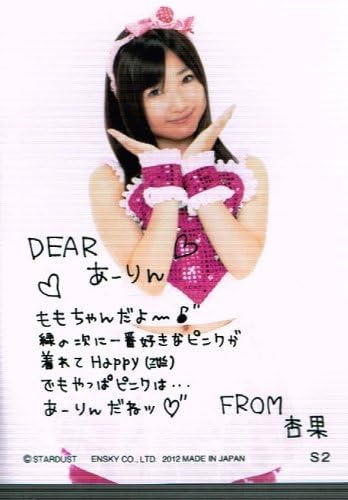 DEAR
あーりん
ももちゃんだよ〜♪"
緑の次に一番好きなピンクが
着れてHappy
でもやっぱピンクは・・・
あーりんだねッ♡"
FROM
杏果
©STARDUST ENSKY CO., LTD. 2012 MADE IN JAPAN S2